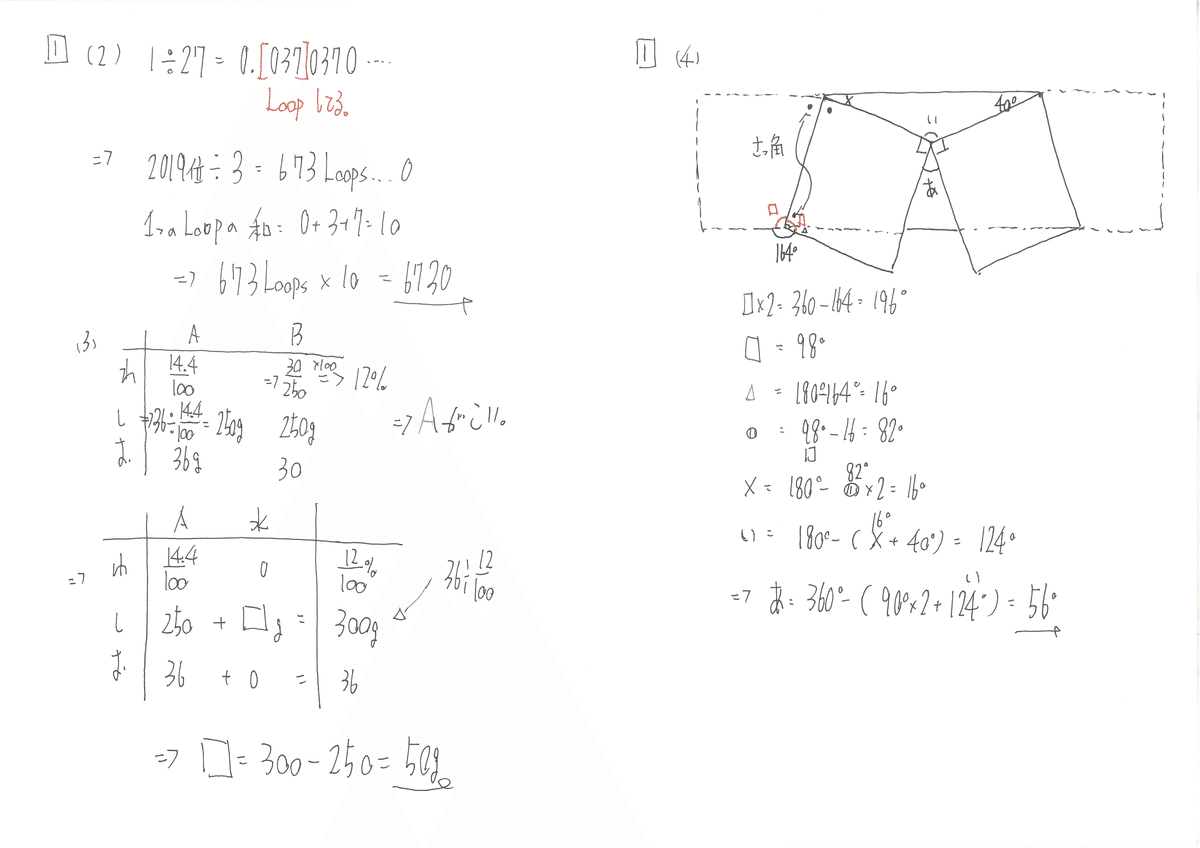 1 (2) 1÷27 = 0.[037]0370 ....
Loop してる。
=> 2019件 ÷ 3 = 673 Loops... 0
1つのLoopの和 = 0+3+7=10
=> 673 Loops × 10 = 6730
(3)
A B
14.4/100 => 30/250 ×100 => 12%
し => 36÷14.4/100 = 250g 250g => Aがこい。
36g 30
A 水
=> 14.4/100 0 12/100 % 36÷12/100
し 250 + □g = 300g
36 + 0 = 36
=> □ = 300 - 250 = 50g
1 (4)
× 40°
い
さっ角
あ
□
□
△
164°
□×2 = 360-164 = 196°
□ = 98°
△ = 180°-164° = 16°
= 98°-16 = 82°
□
82°
X = 180°- ×2 = 16°
16°
い = 180°-( X + 40°) = 124°
い
=> あ = 360°-( 90°×2+124°) = 56°